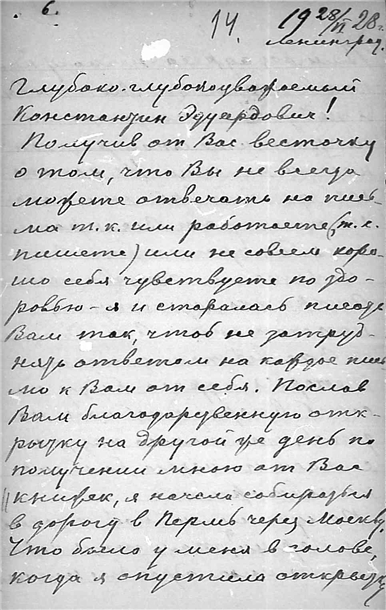 6.
14.
19 28/VI 28 г.
Ленинград.
Глубоко-глубокоуважаемый
Константин Эдуардович!
Получив от Вас весточку
о том, что Вы не всегда
можете отвечать на пись-
ма т.к. или работаете (т.е.
пишете) или не совсем хоро-
шо себя чувствуете по здо-
ровью - я и старалась писать
Вам так, чтоб не затруд-
нять ответом на каждое пись
мо к Вам от себя. Послав
Вам благодарственную отк-
рытку на другой же день по
получении мною от Вас
книжек, я начала собираться
в дорогу в Пермь через Москву.
Что было у меня в голове,
когда я опустила открытку